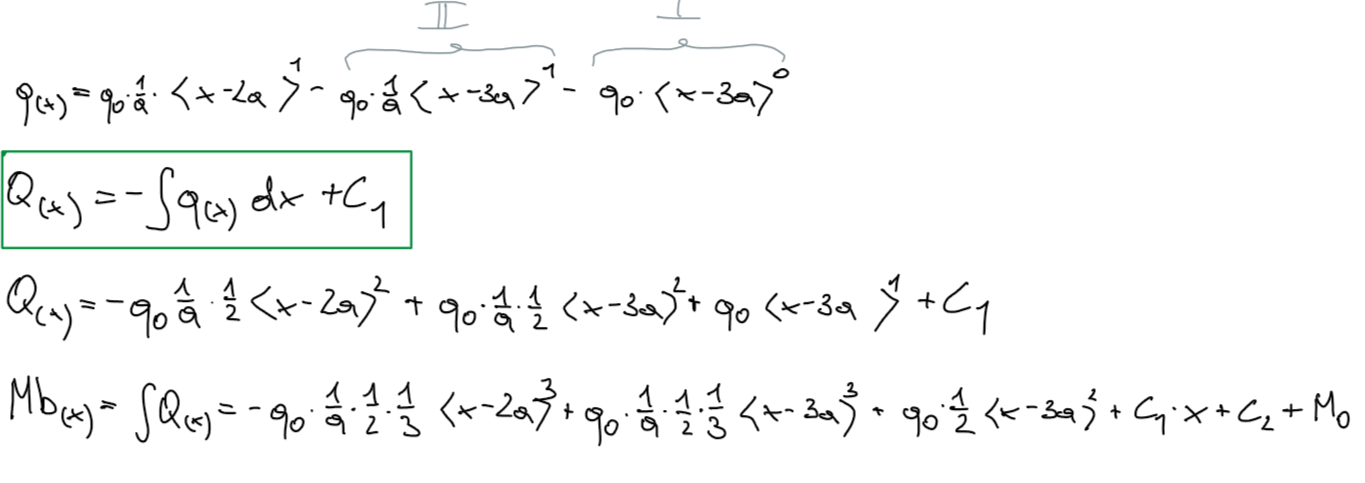 II I
q(x) = q₀·1/a·<x-2a>¹ - q₀·1/a<x-3a>¹ - q₀·<x-3a>⁰
Q(x) = -∫q(x) dx + C₁
Q(x) = -q₀ 1/a·1/2<x-2a>² + q₀·1/a·1/2 <x-3a>² + q₀ <x-3a>¹ + C₁
Mb(x) = ∫Q(x) = -q₀·1/a·1/2·1/3 <x-2a>³ + q₀·1/a·1/2·1/3 <x-3a>³ + q₀·1/2 <x-3a>² + C₁·x + C₂ + M₀